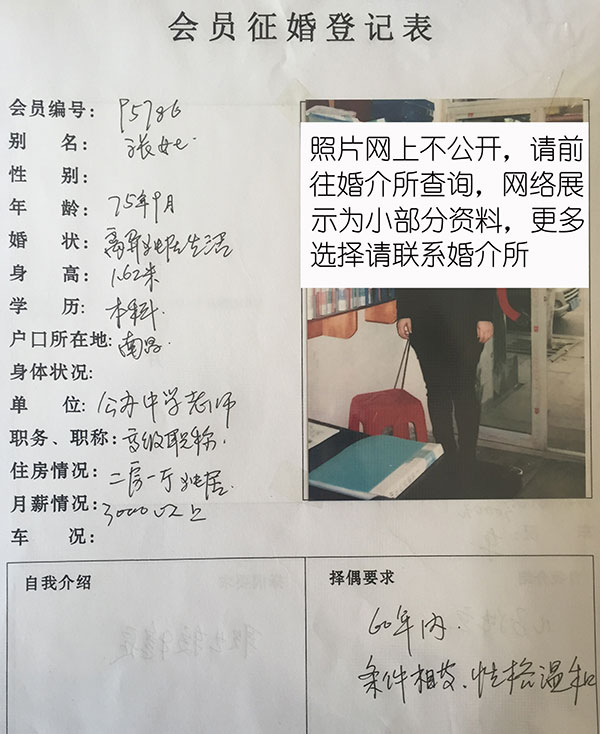 会员征婚登记表
会员编号: P5786
别 名: 张女士
性 别:
年 龄: 75年9月
婚 状: 离异独居生活
身 高: 1.62米
学 历: 本科
户口所在地: 南昌
身体状况:
单 位: 公办中学老师
职务、职称: 高级职称
住房情况: 二房一厅独居
月薪情况: 3000以上
车 况:
照片网上不公开，请前
往婚介所查询，网络展
示为小部分资料，更多
选择请联系婚介所
自我介绍
择偶要求
60年内.
条件相技、性格温和